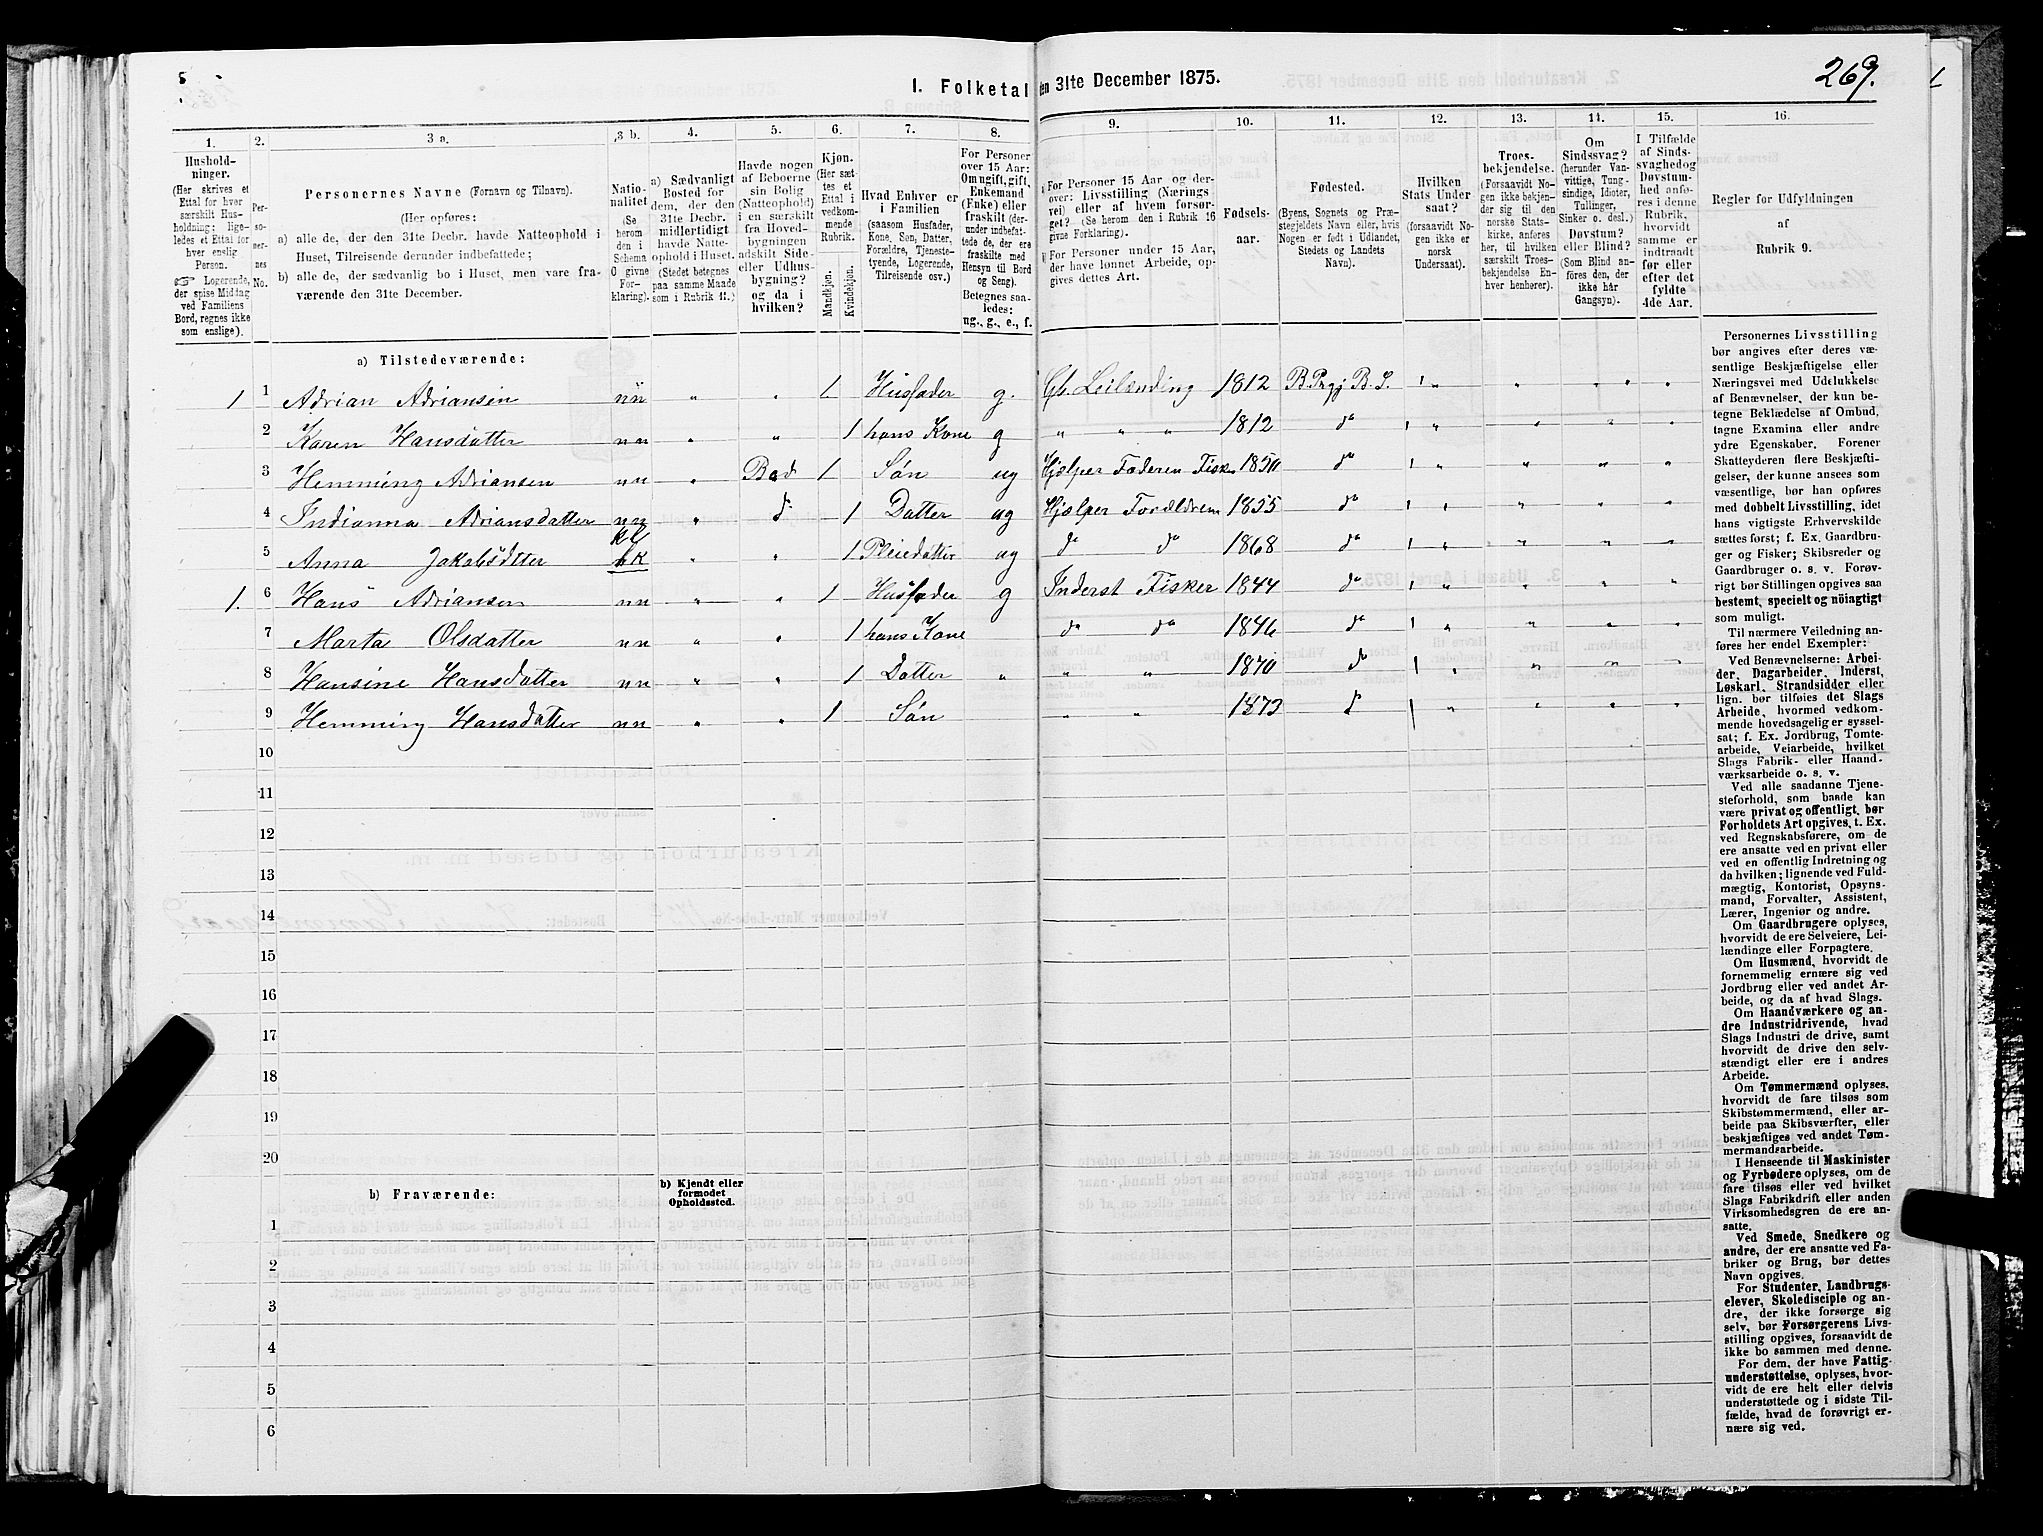 I. Folketal den 31te December 1875.
269.
1.
Hushold-
ninger.
(Her skrives et
Ettal for hver
særskilt Hus-
holdning; lige-
ledes et Ettal for
hver enslig
Person.
☞ Logerende,
der spise Middag
ved Familiens
Bord, regnes ikke
som enslige).
2.
Per-
so-
ner-
nes
No.
3 a.
Personernes Navne (Fornavn og Tilnavn).
(Her opføres:
a) alle de, der den 31te Decbr. havde Natteophold i
Huset, Tilreisende derunder indbefattede;
b) alle de, der sædvanlig bo i Huset, men vare fra-
værende den 31te December.
3 b.
Natio-
nalitet
(Se
herom
den i
Schema
O givne
For-
klaring).
4.
a) Sædvanligt
Bosted for
dem, der den
31te Decbr.
midlertidigt
havde Natte-
ophold i Huset.
(Stedet betegnes
paa samme Maade
som i Rubrik 11.)
5.
Havde nogen
af Beboerne
sin Bolig
(Natteophold)
i en særskilt
fra Hoved-
bygningen
adskilt Side-
eller Udhus-
bygning?
og da i
hvilken?
6.
Kjøn.
(Her sæt-
tes et
Ettal i
vedkom-
mende
Rubrik.
Mandkjøn.
Kvindekjøn.
7.
Hvad Enhver er
i Familien
(saasom Husfader,
Kone, Søn, Datter,
Forældre, Tjeneste-
tyende, Logerende,
Tilreisende osv.)
8.
For Personer
over 15 Aar:
Om ugift, gift,
Enkemand
(Enke) eller
fraskilt (der-
under indbefat-
tede de, der ere
fraskilte med
Hensyn til Bord
og Seng).
Betegnes saa-
ledes:
ug., g., e., f.
9.
a) For Personer 15 Aar og der-
over: Livsstilling (Nærings-
vei) eller af hvem forsør-
get? (Se herom den i Rubrik 16
givne Forklaring).
b) For Personer under 15 Aar,
der have lønnet Arbeide, op-
gives dettes Art.
10.
Fødsels-
aar.
11.
Fødested.
(Byens, Sognets og Præ-
stegjeldets Navn eller, hvis
Nogen er født i Udlandet,
Stedets og Landets
Navn).
12.
Hvilken
Stats Under-
saat?
(forsaavidt No-
gen ikke er
norsk
Undersaat).
13.
Troes-
bekjendelse.
(Forsaavidt No-
gen ikke bekjen-
der sig til den
norske Stats-
kirke, anføres
her, til hvilken
særskilt Troes-
bekjendelse En-
hver henhører).
14.
Om
Sindssvag?
(herunder Van-
vittige, Tung-
sindige, Idioter,
Tullinger,
Sinker o. desl.)
Døvstum?
eller Blind?
(Som Blind an-
føres den, der
ikke har
Gangsyn).
15.
I Tilfælde
af Sinds-
svaghed og
Døvstum-
hed anfø-
res i denne
Rubrik,
hvorvidt
samme er
indtraadt
før eller
efter det
fyldte
4de Aar.
16.
Regler for Udfyldningen
af
Rubrik 9.
a) Tilstedeværende:
1 1 Adrian Adriansen nn " " 1 Husfader g. Gb. Leilænding 1812 B. Prgj B. S. " " " "
2 Karen Hansdatter nn " " 1 hans Kone g " " " 1812 do " " " "
3 Hemming Adriansen nn " Bod 1 Søn ug Hjælper Faderen Fisk 1850 do " " " "
4 Indianna Adriansdatter nn " do 1 Datter ug Hjælper Forældren 1855 do " " " "
5 Anna Jakobsdtter bk " " 1 Pleiedatter ug do do 1868 do " " " "
1. 6 Hans Adriansen nn " " 1 Husfader g Inderst Fisker 1844 do " " " "
7 Marta Olsdatter nn " " 1 hans Kone do do 1846 do " " " "
8 Hansine Hansdatter nn " " 1 Datter " " " 1870 do " " " "
9 Hemming Hansdatter nn " " 1 Søn " " 1873 do " " " "
10
11
12
13
14
15
16
17
18
19
20
b) Fraværende:
b) Kjendt eller
formodet
Opholdssted.
1
2
3
4
5
6
Personernes Livsstilling
bør angives efter deres væ-
sentlige Beskjæftigelse eller
Næringsvei med Udelukkelse
af Benævnelser, der kun be-
tegne Beklædelse af Ombud,
tagne Examina eller andre
ydre Egenskaber. Forener
Skatteyderen flere Beskjæfti-
gelser, der kunne ansees som
væsentlige, bør han opføres
med dobbelt Livsstilling, idet
hans vigtigste Erhvervskilde
sættes først; f. Ex. Gaardbru-
ger og Fisker; Skibsreder og
Gaardbruger o. s. v. Forøv-
rigt bør Stillingen opgives saa
bestemt, specielt og nöiagtigt
som muligt.
Til nærmere Veiledning an-
føres her endel Exempler:
Ved Benævnelserne: Arbei-
der, Dagarbeider, Inderst,
Løskarl, Strandsidder eller
lign. bør tilføies det Slags
Arbeide, hvormed vedkom-
mende hovedsagelig er syssel-
sat; f. Ex. Jordbrug, Tomte-
arbeide, Veiarbeide, hvilket
Slags Fabrik- eller Haand-
værksarbeide o. s. v.
Ved alle saadanne Tjene-
steforhold, som baade kan
være privat og offentligt, bør
Forholdets Art opgives, t. Ex.
ved Regnskabsførere, om de
ere ansatte ved en privat eller
ved en offentlig Indretning og
da hvilken; lignende ved Fuld-
mægtig, Kontorist, Opsyns-
mand, Forvalter, Assistent,
Lærer, Ingeniør og andre.
Om Gaardbrugere oplyses,
hvorvidt de ere Selveiere, Lei-
lændinge eller Forpagtere.
Om Husmænd, hvorvidt de
fornemmelig ernære sig ved
Jordbrug eller ved andet Ar-
beide, og da af hvad Slags.
Om Haandværkere og an-
dre Industridrivende, hvad
Slags Industri de drive, samt
hvorvidt de drive den selv-
stændigt eller ere i andres
Arbeide.
Om Tømmermænd oplyses,
hvorvidt de fare tilsøs som
Skibstømmermænd, eller ar-
beide paa Skibsværfter, eller
beskjæftiges ved andet Tøm-
mermandsarbeide.
I Henseende til Maskinister
og Fyrbødere oplyses, om de
fare tilsøs eller ved hvilket
Slags Fabrikdrift eller anden
Virksomhedsgren de ere an-
satte.
Ved Smede, Snedkere og
andre, der ere ansatte ved Fa-
briker og Brug, bør dettes
Navn opgives.
For Studenter, Landbrugs-
elever, Skoledisciple og an-
dre, der ikke forsørge sig
selv, bør Forsørgerens Livs-
stilling opgives, forsaavidt de
ikke bo sammen med denne.
For dem, der have Fattig-
understøttelse, oplyses, hvor-
vidt de ere helt eller delvis
understøttede og i sidste Til-
fælde, hvad de forøvrigt er-
nære sig ved.